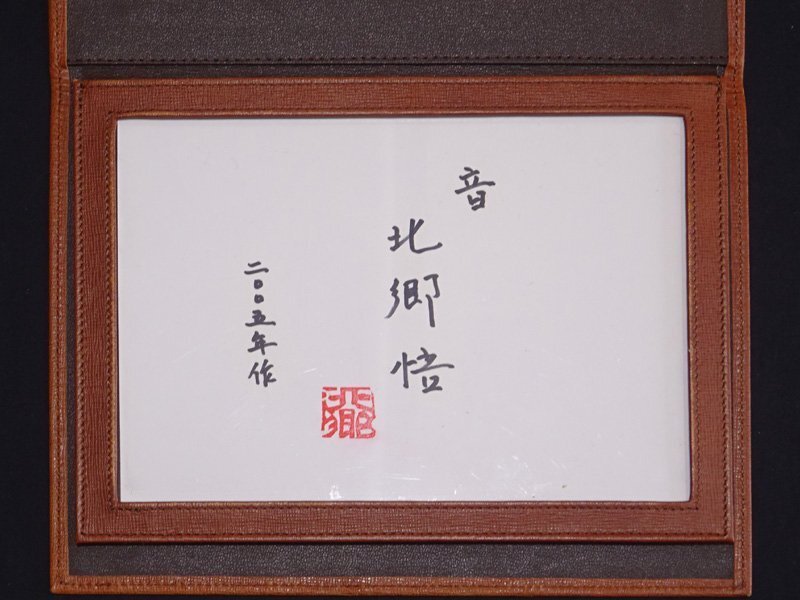 音
北郷悟
二〇〇五年作
北郷